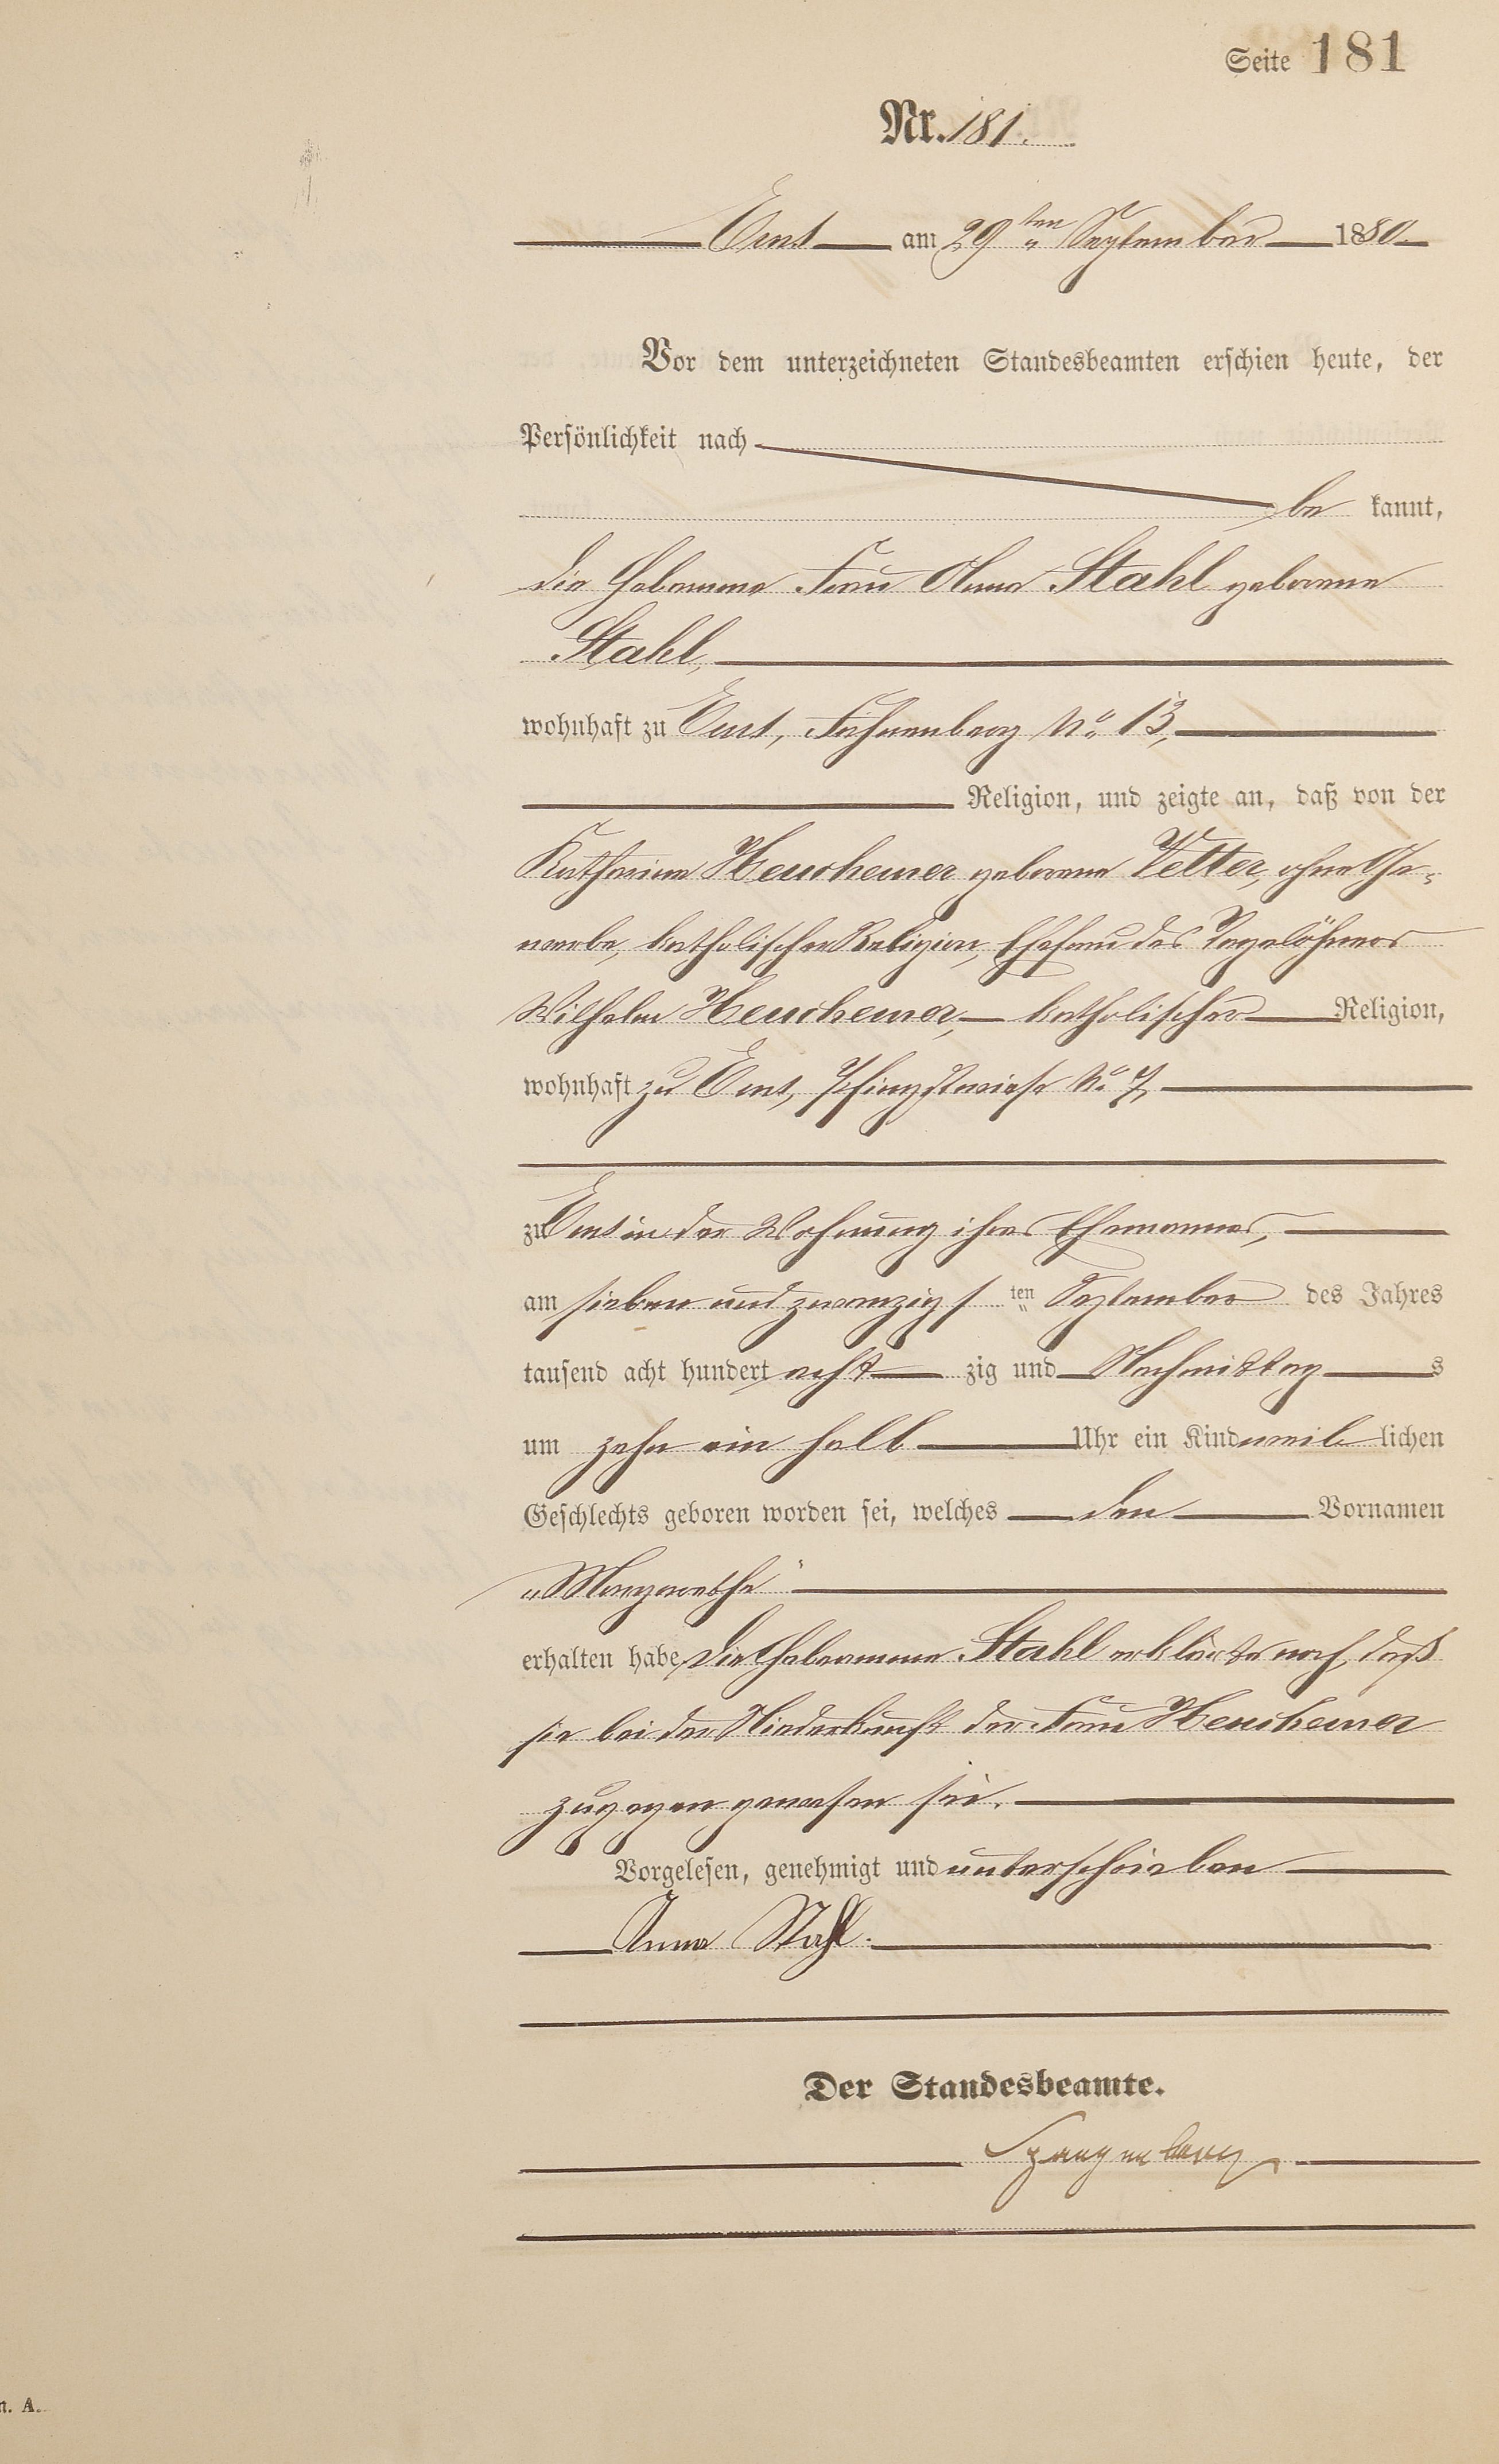 Seite 181
Nr. 181.
Ems am 29ten September 1880.
Vor dem unterzeichneten Standesbeamten erschien heute, der
Persönlichkeit nach
be kannt,
die Hebamme Frau Anna Stahl geborene
Stahl,
wohnhaft zu Ems, No. 13,
Religion, und zeigte an, daß von der
Katharina Heuchemer geborene Vetter, ohne Ge-
werbe, katholischer Religion, Ehefrau des Tagelöhners
Wilhelm Heuchemer, katholischer Religion,
wohnhaft zu Ems, Pfingstwiese No. 7,
zu Ems in der Wohnung ihres Ehemannes,
am sieben und zwanzigsten September des Jahres
tausend acht hundert acht zig und Nachmittag s
um zehn ein halb Uhr ein Kind weib lichen
Geschlechts geboren worden sei, welches den Vornamen
„Margarethe"
erhalten habe. Die Hebamme Stahl erklärte noch, daß
sie bei der Niederkunft der Frau Heuchemer
zugegen gewesen sei.
Vorgelesen, genehmigt und unterschrieben
Anna Stahl.
Der Standesbeamte.
Spangenberg
n. A.